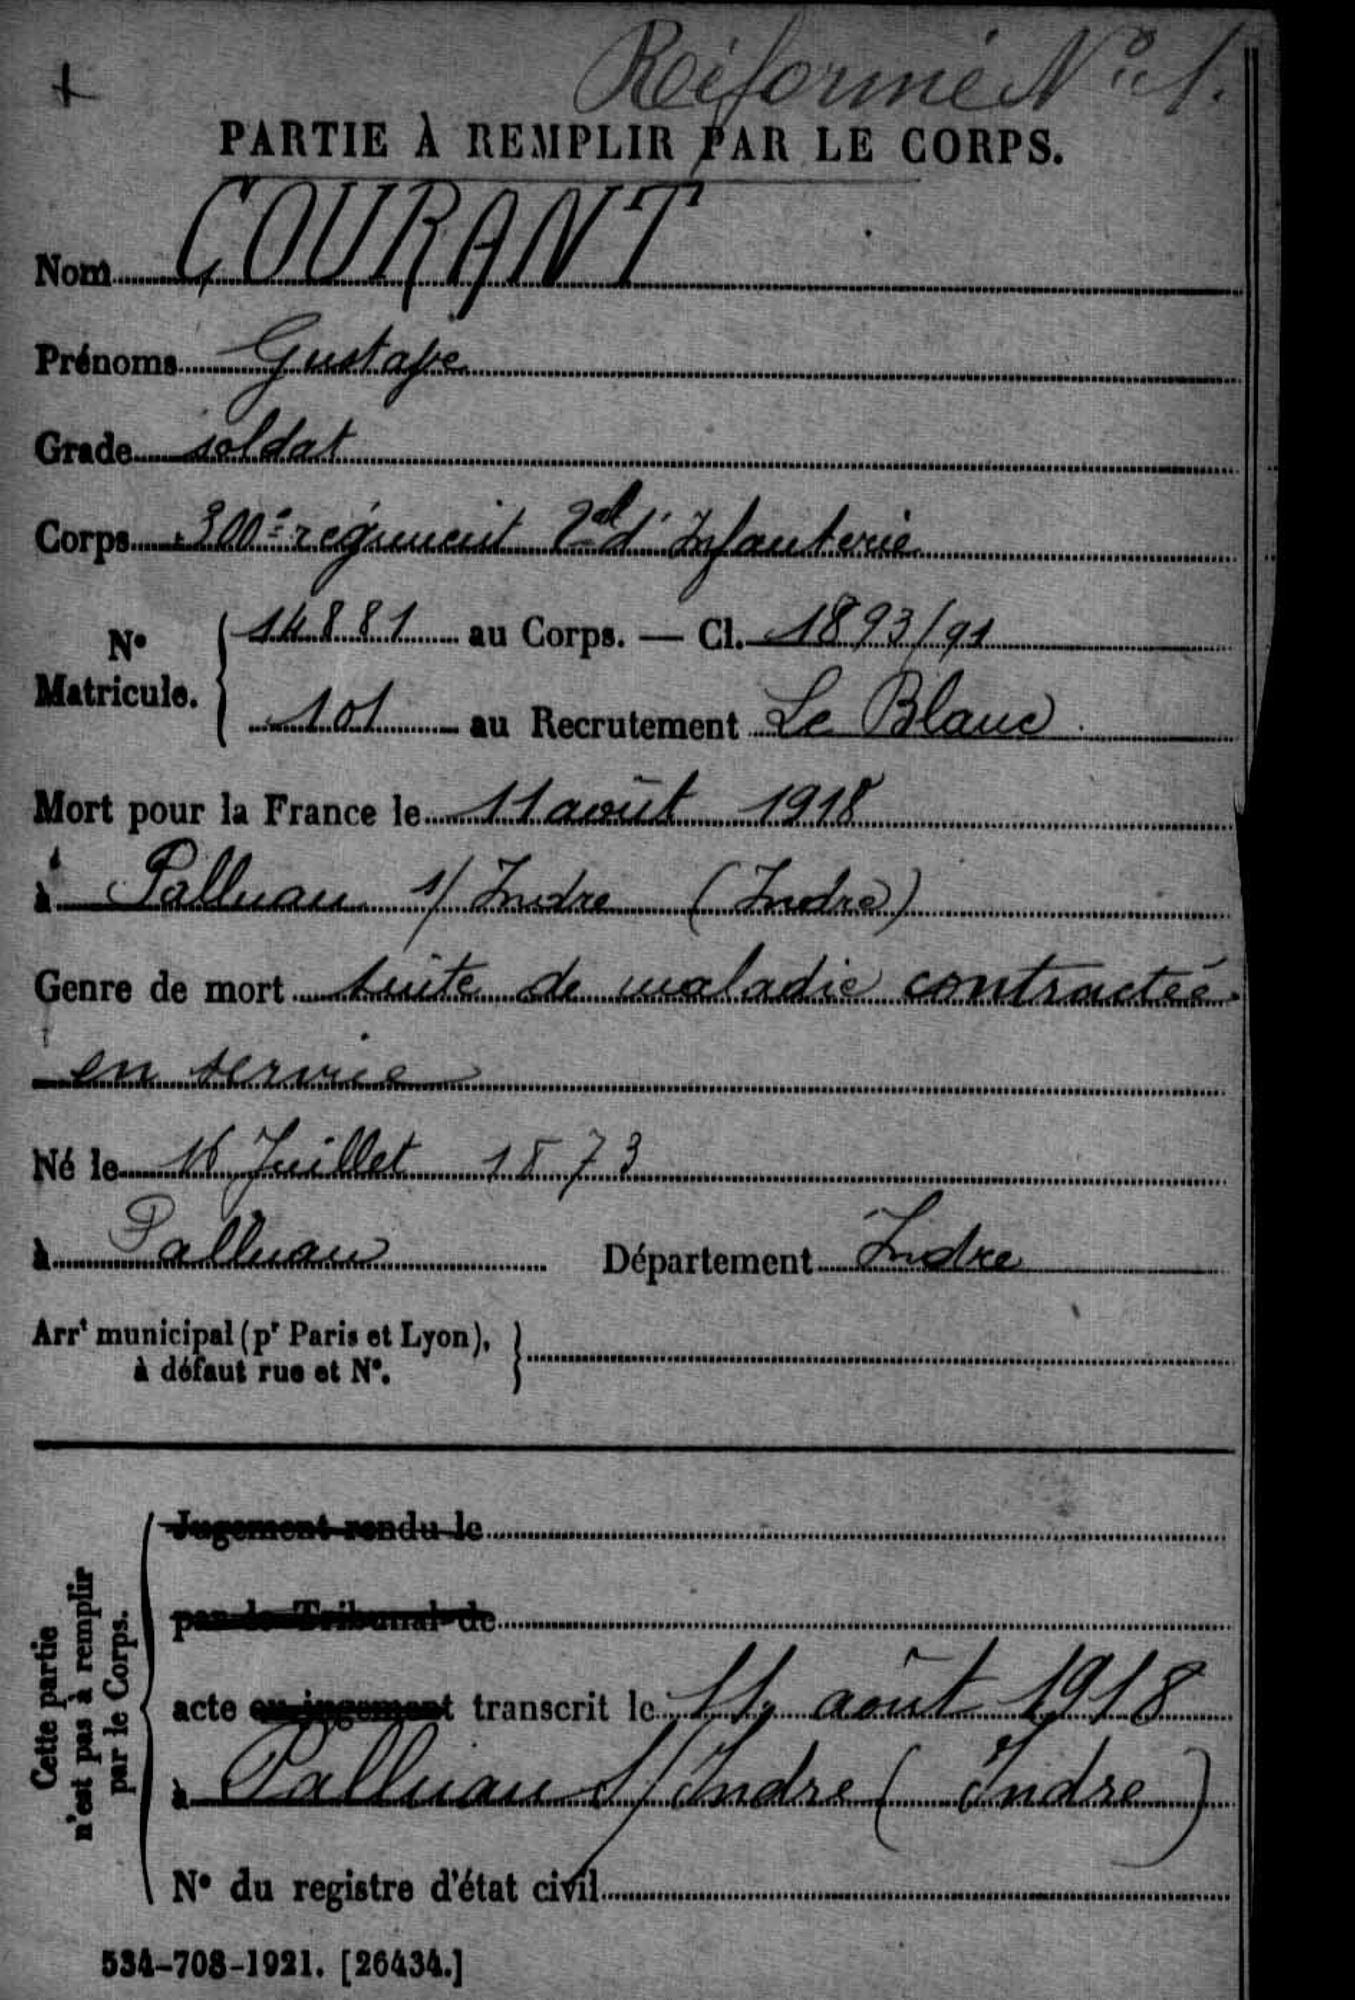 Réformé N° 1.
PARTIE À REMPLIR PAR LE CORPS.
Nom COURANT
Prénoms Gustave
Grade soldat
Corps 300e régiment tal d'Infanterie
N° Matricule. 14881 au Corps. — Cl. 1893/91
101 au Recrutement Le Blanc
Mort pour la France le 11 août 1918
à Palluau s/ Indre (Indre)
Genre de mort suite de maladie contractée
en service
Né le 16 Juillet 1873
à Palluau Département Indre
Arrt municipal (pr Paris et Lyon),
à défaut rue et N°.
Cette partie
n'est pas à remplir
par le Corps.
Jugement rendu le
par le Tribunal de
acte ou jugement transcrit le 11 août 1918
à Palluau s/ Indre (Indre)
N° du registre d'état civil
534-708-1921. [26434.]